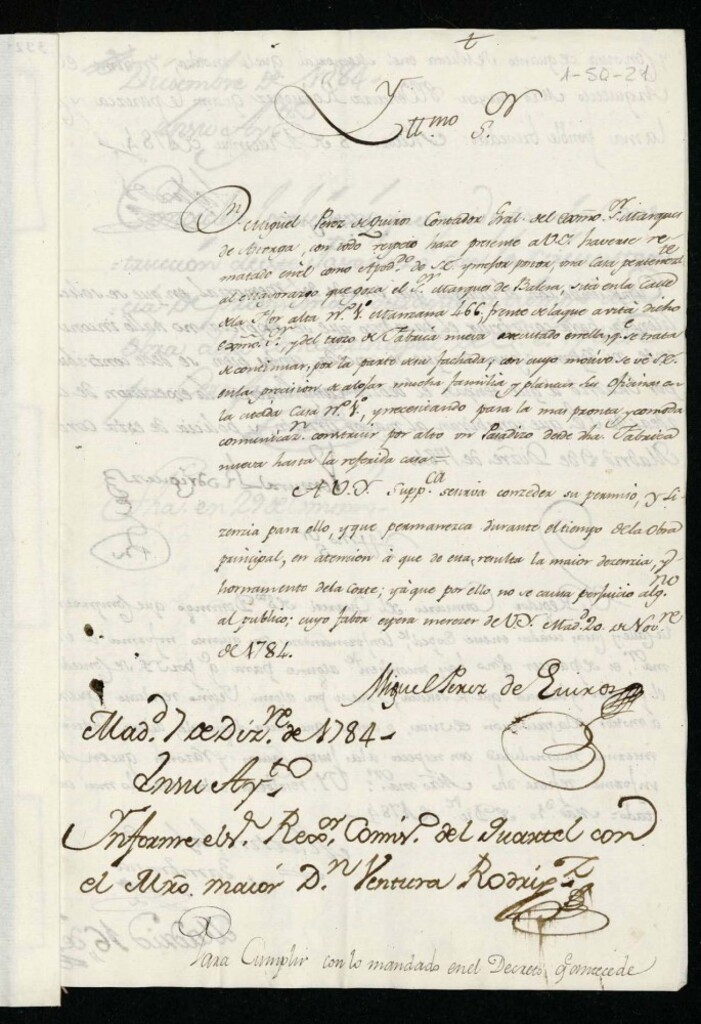 1-50-21
Yll.mo S.r
D.n Miguel Perez de Quiros Contador Gral. del Exmo. S.r Marques
de Astorga, con todo respeto hace presente a V.S. haverse re
matado en el como Apod.do de S.E. y mejor postor, una Casa perteneciente
al Mayorazgo que goza el S.r Marques de sita en la Calle
de la Flor alta n.o 1.o Manzana 466, frente de la que avita dicho
Exmo. S.r y del trozo de Fabrica nueva executado en ella, q.e se trata
de continuar, por la parte de su fachada; con cuyo motivo se ve S.E.
en la precision de alojar mucha familia y plantar sus Oficinas en
la citada Casa n.o 1.o, y necesitando para la mas pronta, y comoda
comunicaz.n construir por alto un Pasadizo desde dha Fabrica
nueva hasta la referida casa=
A V.Y. Supp.ca se sirva conzeder su permiso, y Li
zenzia para ello, y que permanezca durante el tiempo de la Obra
principal, en atencion à que de esta, resulta la maior decencia, y
hornamento de la Corte; y à que por ello, no se causa perjuicio alg.no
al publico; cuyo fabor espera merecer de V.Y. Mad.d 20 de Nov.re
de 1784.
Miguel Perez de Quiros
Mad.d 7 de Diz.re de 1784
En su Ay.to
Informe el S.r Rex.or Comis.o del Quartel con
el Mro. maior D.n Ventura Rodrig.z
Para Cumplir con lo mandado en el Decreto q antecede